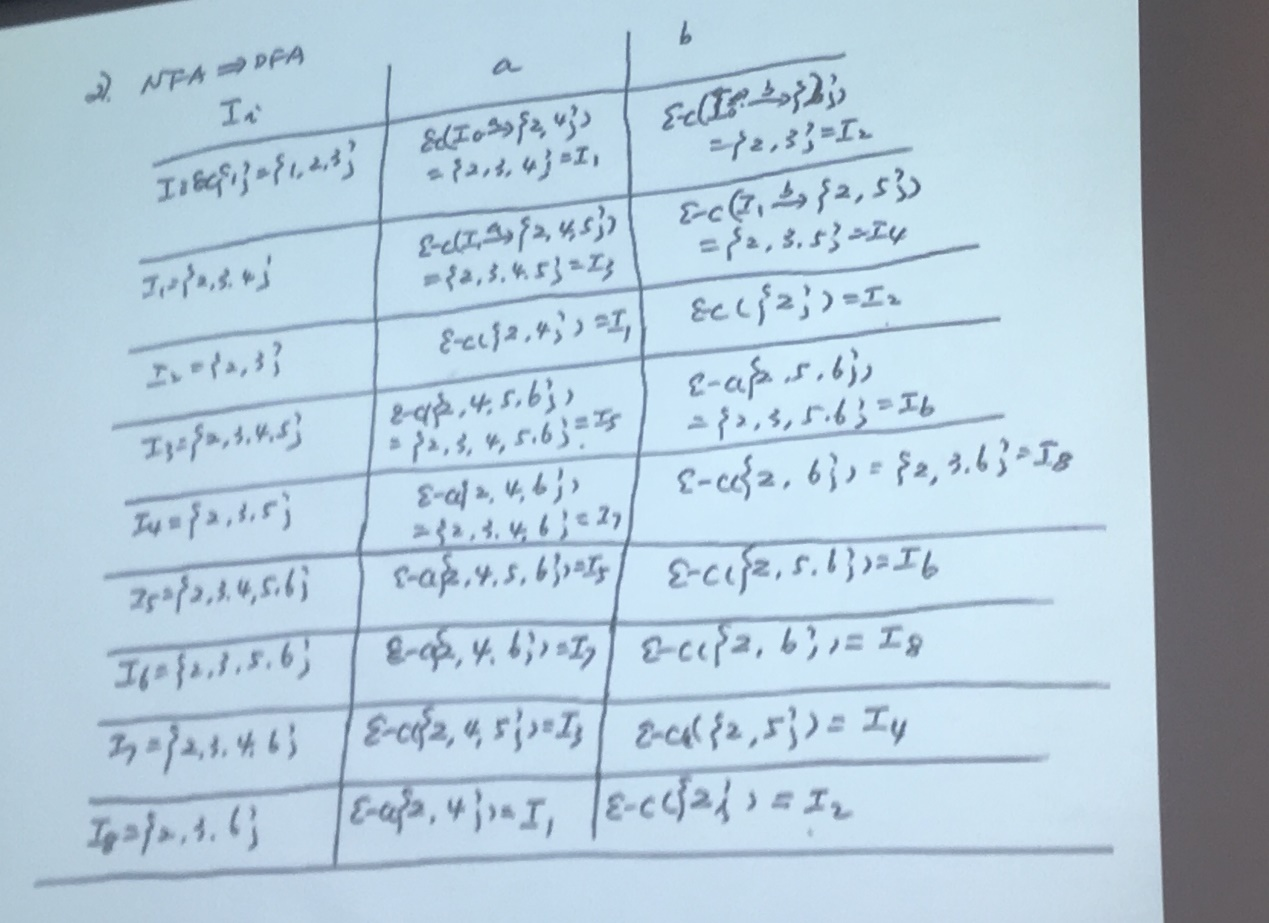 2) NFA ⇒ DFA
Ii a b
I0 ε-c{1} = {1,2,3} ε-c(I0 a→ {2,4}) = {2,3,4} = I1 ε-c(I0 b→ {2}) = {2,3} = I2
I1 = {2,3,4} ε-c(I1 a→ {2,4,5}) = {2,3,4,5} = I3 ε-c(I1 b→ {2,5}) = {2,3,5} = I4
I2 = {2,3} ε-c({2,4}) = I1 εc({2}) = I2
I3 = {2,3,4,5} ε-c({2,4,5,6}) = {2,3,4,5,6} = I5 ε-c({2,5,6}) = {2,3,5,6} = I6
I4 = {2,3,5} ε-c({2,4,6}) = {2,3,4,6} = I7 ε-c({2,6}) = {2,3,6} = I8
I5 = {2,3,4,5,6} ε-c({2,4,5,6}) = I5 ε-c({2,5,6}) = I6
I6 = {2,3,5,6} ε-c({2,4,6}) = I7 ε-c({2,6}) = I8
I7 = {2,3,4,6} ε-c({2,4,5}) = I3 ε-c({2,5}) = I4
I8 = {2,3,6} ε-c({2,4}) = I1 ε-c({2}) = I2